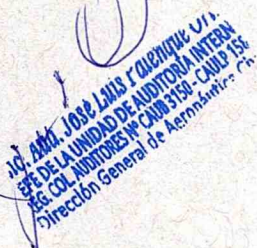 José Luis
EFE DE LA UNIDAD DE AUDITORÍA INTERN
EG. COL. AUDITORES Nº CAUB 3150 - CAULP 156
Dirección General de Aeronáutica